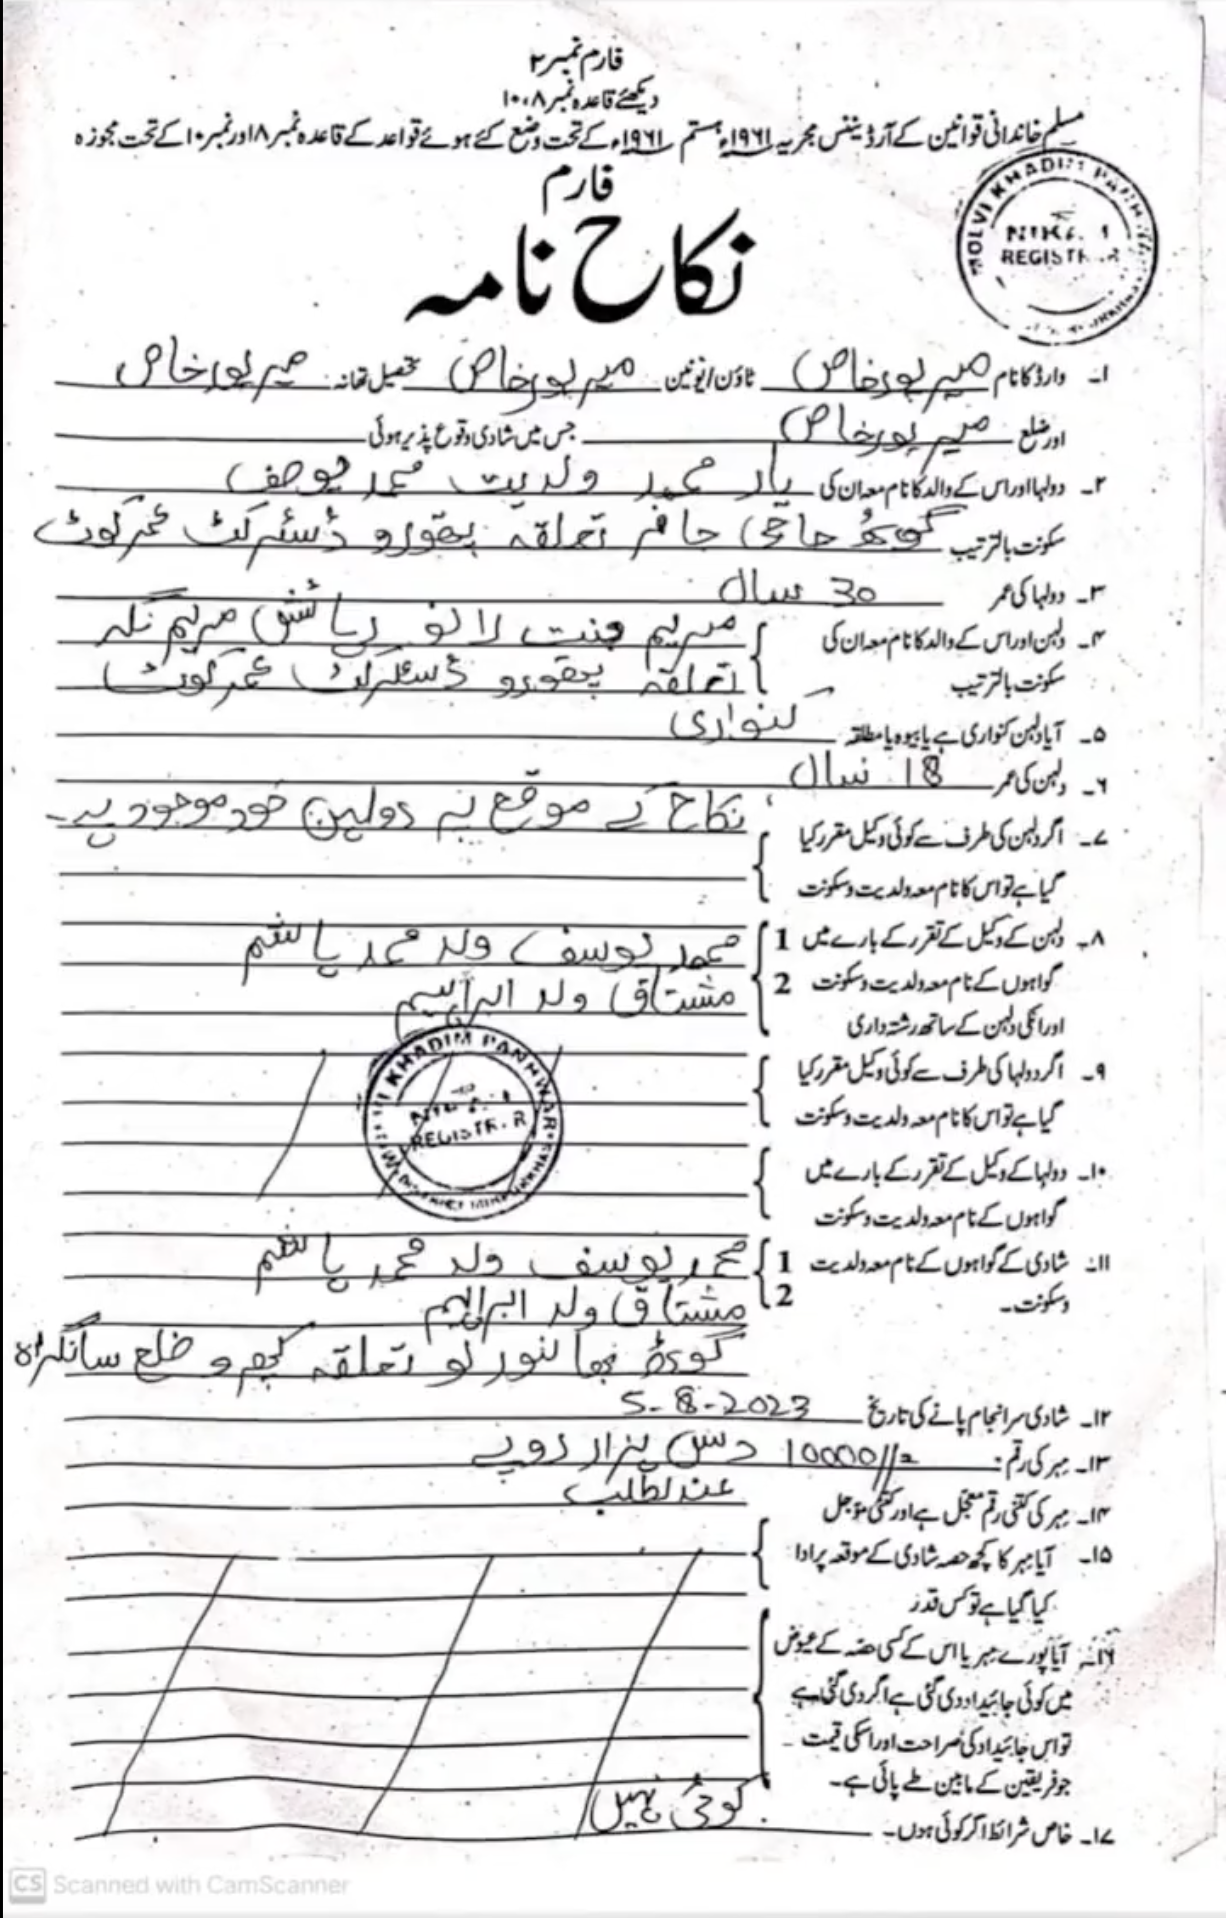 فارم نمبر ۲
دیکھئے قاعدہ نمبر ۸، ۱۰
مسلم خاندانی قوانین کے آرڈیننس مجریہ ۱۹۶۱ء ہشتم ۱۹۶۱ء کے تحت وضع کئے ہوئے قواعد کے قاعدہ نمبر ۱۸ اور نمبر ۱۰ کے تحت مجوزہ
فارم
نکاح نامہ
MOLVI KHADIM PANHWAR
REGISTRAR
۱۔ وارڈ کا نام میرپورخاص ٹاؤن/یونین میرپورخاص تحصیل تھانہ میرپورخاص
اور ضلع میرپورخاص جس میں شادی وقوع پذیر ہوئی
۲۔ دولہا اور اس کے والد کا نام معہ ان کی یار محمد ولدیت محمد یوصف
سکونت بالترتیب گوٹھ حاجی تعلقہ پتھورو ڈسٹرکٹ عمرکوٹ
۳۔ دولہا کی عمر 30 سال
۴۔ دلہن اور اس کے والد کا نام معہ ان کی مریم بنت رہائش مریم نگر
سکونت بالترتیب تعلقہ پتھورو ڈسٹرکٹ عمرکوٹ
۵۔ آیا دلہن کنواری ہے یا بیوہ یا مطلقہ کنواری
۶۔ دلہن کی عمر 18 سال
۷۔ اگر دلہن کی طرف سے کوئی وکیل مقرر کیا نکاح کے موقع پہ دولہن خود موجود ہے۔
گیا ہے تو اس کا نام معہ ولدیت وسکونت
۸۔ دلہن کے وکیل کے تقرر کے بارے میں 1 محمد یوسف ولد محمد ہاشم
گواہوں کے نام معہ ولدیت وسکونت 2 مشتاق ولد ابراہیم
اور انکی دلہن کے ساتھ رشتہ داری
MOLVI KHADIM PANHWAR
REGISTRAR
DISTRICT MIRPURKHAS
۹۔ اگر دولہا کی طرف سے کوئی وکیل مقرر کیا
گیا ہے تو اس کا نام معہ ولدیت وسکونت
۱۰۔ دولہا کے وکیل کے تقرر کے بارے میں
گواہوں کے نام معہ ولدیت وسکونت
۱۱۔ شادی کے گواہوں کے نام معہ ولدیت 1 محمد یوسف ولد محمد ہاشم
وسکونت۔ 2 مشتاق ولد ابراہیم
گوٹھ تعلقہ کھپرو ضلع سانگھڑ
۱۲۔ شادی سرانجام پانے کی تاریخ 5-8-2023
۱۳۔ مہر کی رقم: 10000//= دس ہزار روپے
۱۴۔ مہر کی کتنی رقم معجل ہے اور کتنی مؤجل عندلطلب
۱۵۔ آیا مہر کا کچھ حصہ شادی کے موقعہ پر ادا
کیا گیا ہے تو کس قدر
۱۶۔ آیا پورے مہر یا اس کے کسی حصہ کے عیوض
میں کوئی جائیداد دی گئی ہے اگر دی گئی ہے
تو اس جائیداد کی صراحت اور اسکی قیمت
جو فریقین کے مابین طے پائی ہے۔
۱۷۔ خاص شرائط اگر کوئی ہوں۔ کوئی نہیں
CS Scanned with CamScanner